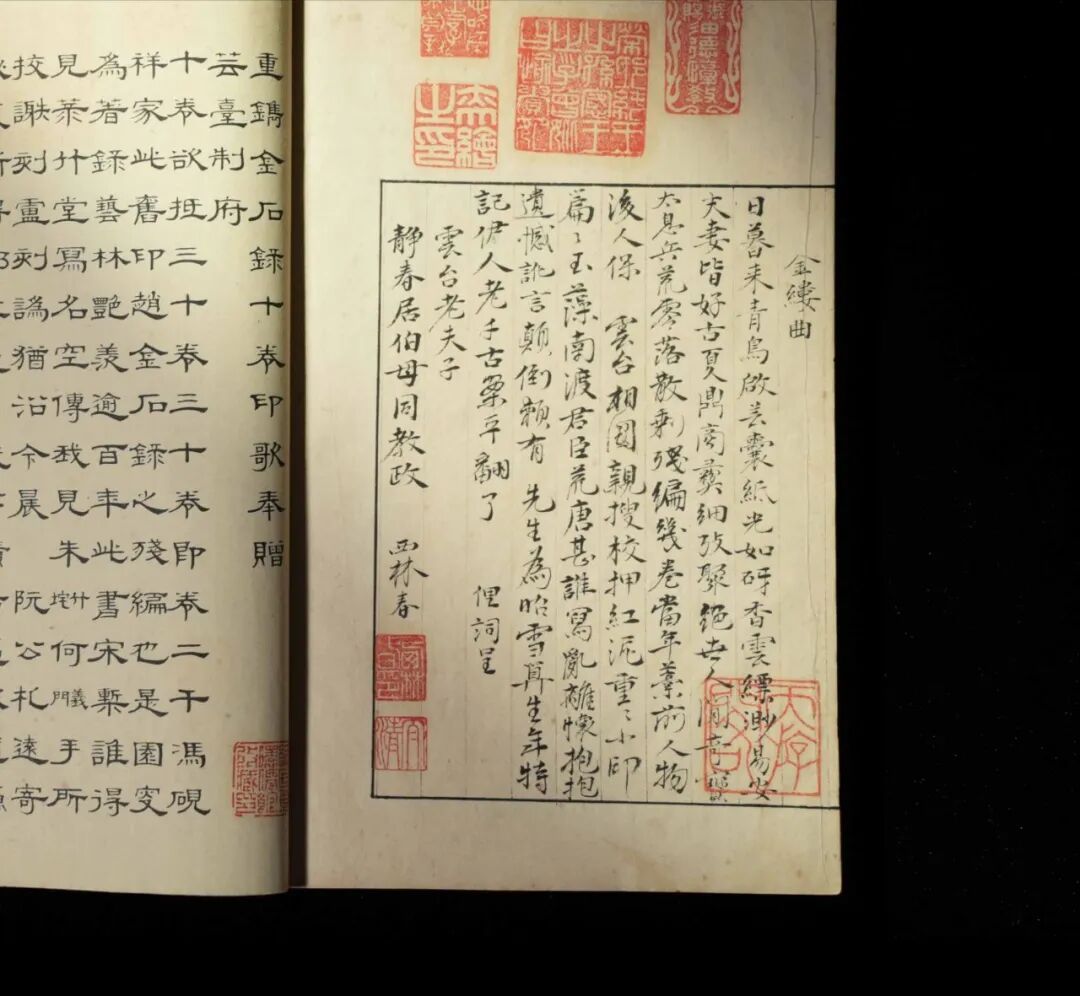 金縷曲
日暮来青鳥啟芸囊紙光如砑香雲縹渺易安
夫妻皆好古夏鼎商彝細攷聚絕世人間奇寶
太息兵荒零落散剩殘編幾卷當年藁前人物
後人保 雲台相國親搜校押紅泥重〻小印
篇〻玉藻南渡君臣荒唐甚誰寫亂離懷抱抱
遺憾訛言顛倒賴有 先生為昭雪算生年特
記伊人老千古案平翻了 俚詞呈
雲台老夫子
靜春居伯母同教政 西林春
重鐫金石錄十卷印歌奉贈
芸臺制府
十卷欲抵三十卷三十卷即卷二千馮硯
祥家此舊印趙金石錄之殘編也是園叟
為著錄藝林艷羨逾百年此書宋槧誰得
見菉竹堂寫名空傳我見朱竹垞何義門手所
校謝刻盧刻譌猶沿今晨阮公札遠寄